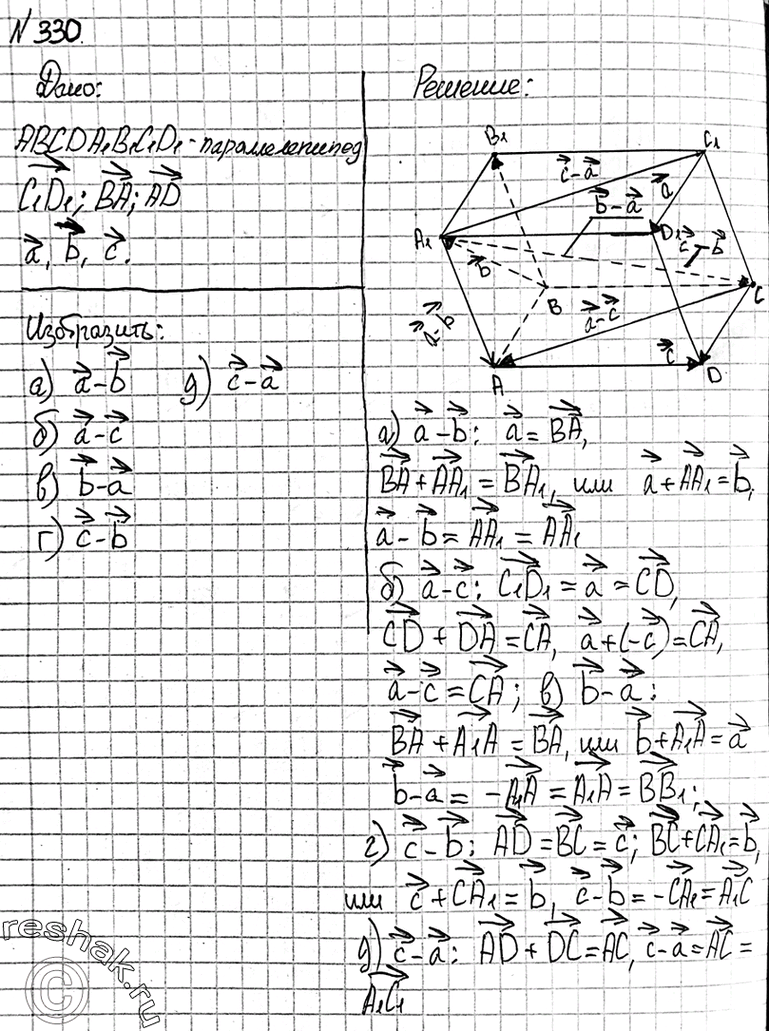 N 330.
Дано:
ABCDA₁B₁C₁D₁ - параллелепипед
C₁D₁; BA; AD
a, b, c.
Изобразить:
а) a-b д) c-a
б) a-c
в) b-a
г) c-b
Решение:
B₁ C₁
c-a a
b-a
A₁ D₁ c-b
b
B C
a-b a-c
c
A D
а) a-b: a = BA,
BA + AA₁ = BA₁, или a + AA₁ = b,
a - b = AA₁ = AA₁
б) a-c: C₁D₁ = a = CD,
CD + DA = CA, a + (-c) = CA,
a-c = CA; в) b-a:
BA + A₁A = BA, или b + A₁A = a
b-a = -A₁A = A₁A = BB₁;
г) c-b: AD = BC = c; BC + CA₁ = b,
или c + CA₁ = b, c-b = -CA₁ = A₁C
д) c-a: AD + DC = AC, c-a = AC =
A₁C₁
reshak.ru
©